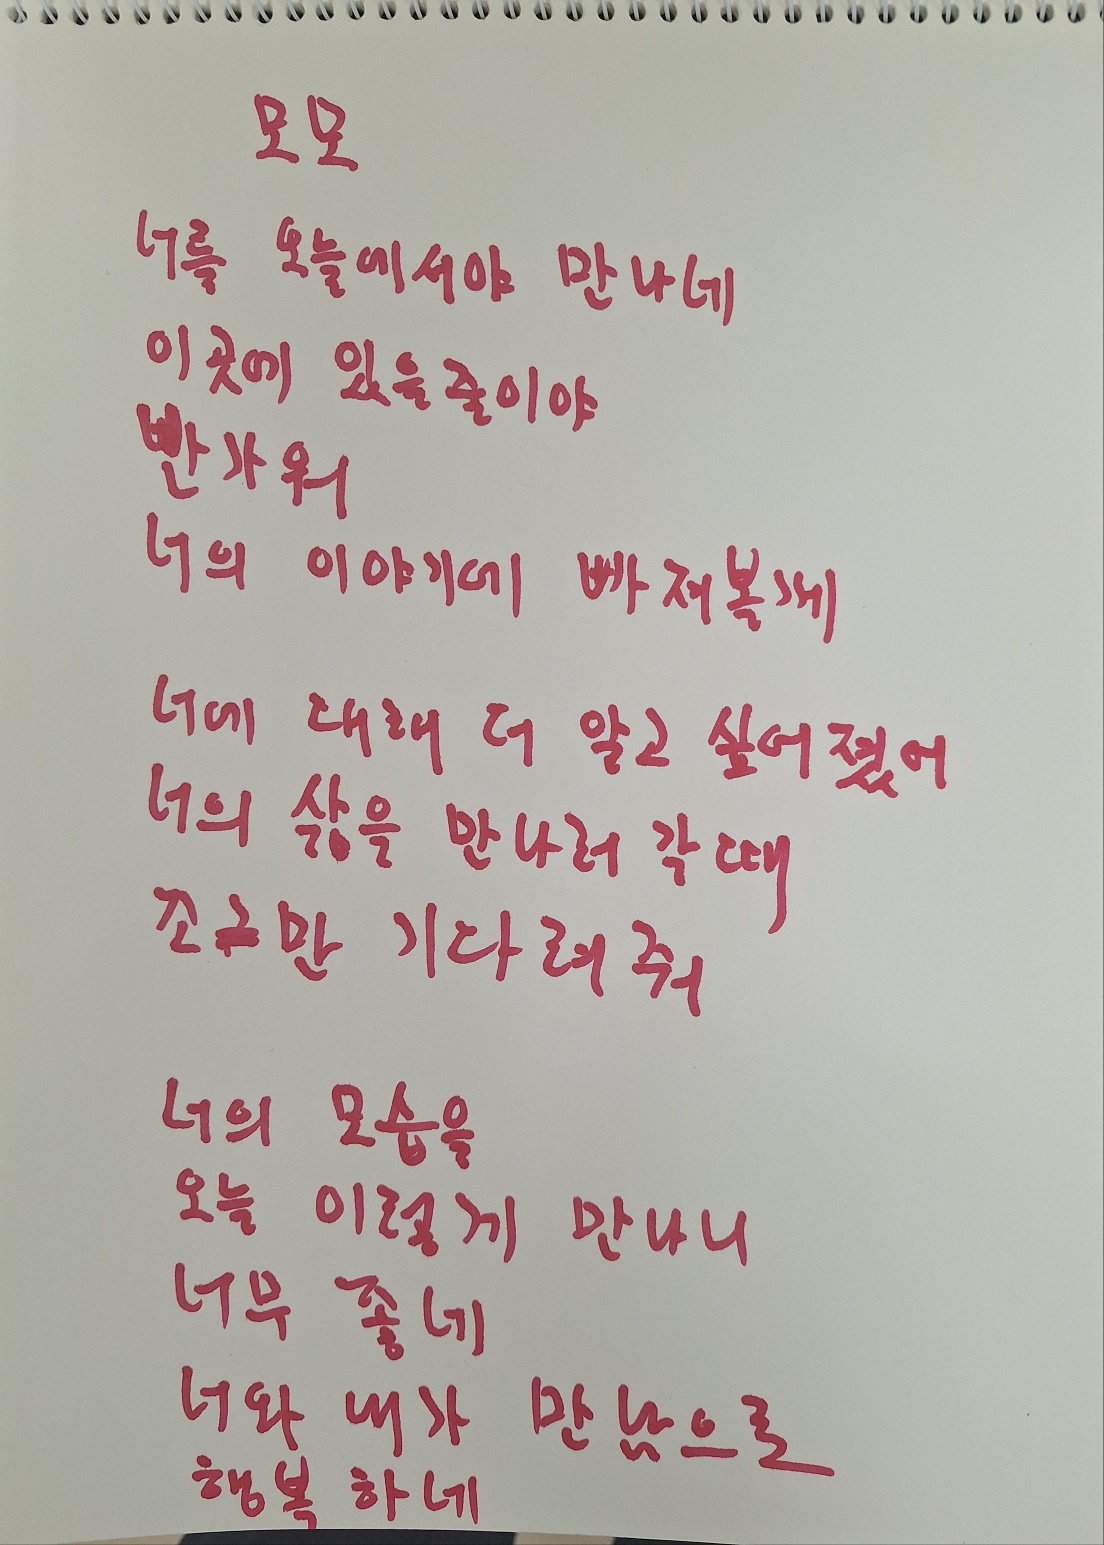 모모
너를 오늘에서야 만나네
이곳에 있을줄이야
빤가워
너의 이야기에 빠저볼께
너에 대해 더 알고 싶어졌어
너의 삶을 만나러 갈때
조금만 기다려줘
너의 모습을
오늘 이렇게 만나니
너무 좋네
너와 내가 만남으로
행복하네